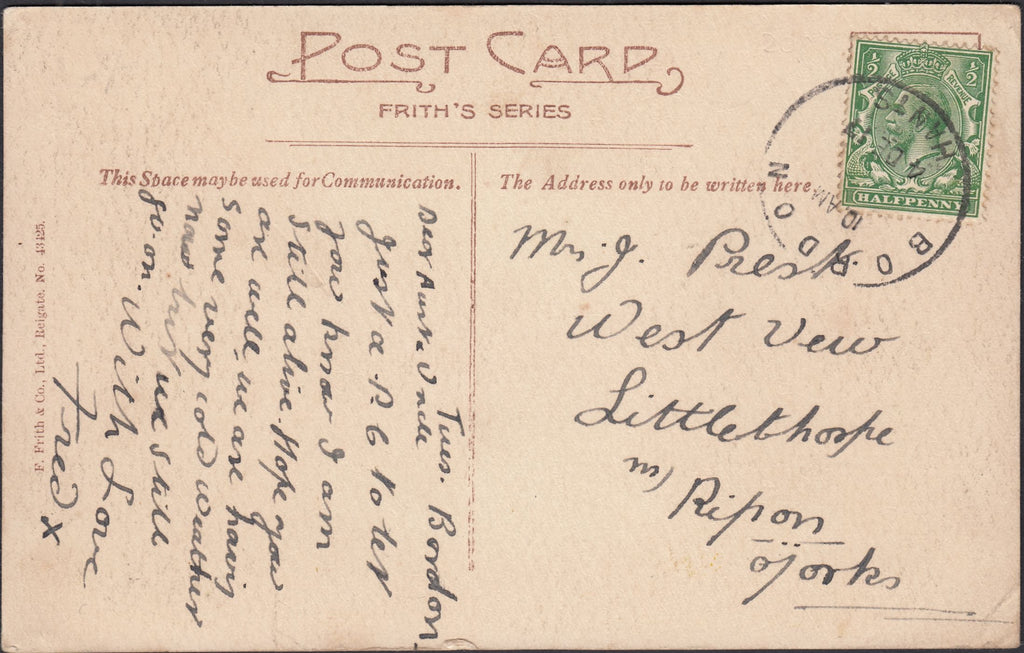 POST CARD
FRITH'S SERIES
This Space may be used for Communication.
The Address only to be written here.
Tues. Bordon
Dear Aunt & Uncle
Just a P.C to let
you know I am
still alive. Hope you
are well, we are having
some very cold weather
now but we still
go on. With Love
Fred x
Mrs J. Prest
West View
Littlethorpe
nr) Ripon
Yorks
½ ½
REVENUE
HALFPENNY
BORDON
10 AM
4 DE
HANTS
F. Frith & Co., Ltd., Reigate. No. 43125.